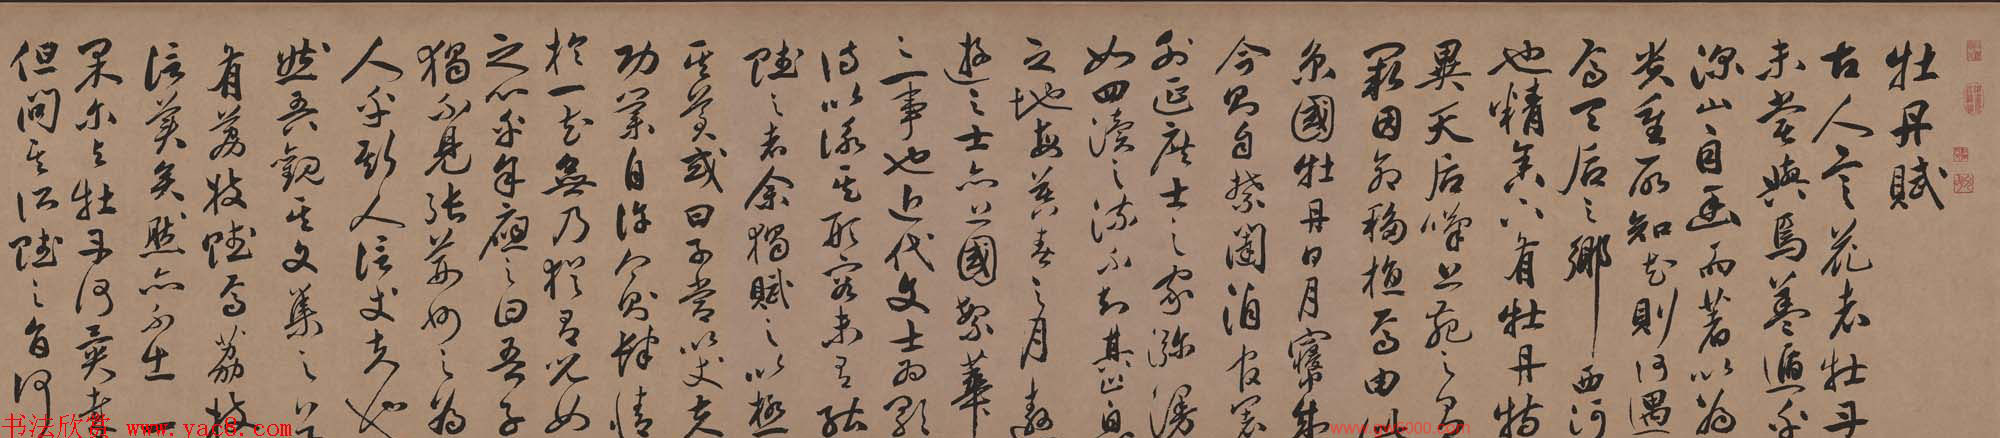 牡丹賦
古人言花者牡丹
未嘗與焉蓋遁乎
深山自幽而著以為
貴重所知花則何遇
焉天后之鄉西河
也精舍下有牡丹特
異天后嘆上苑之有
闕因命移植焉由此
京國牡丹日月寖盛
今則自禁闥洎官署
外延庶士之家瀰漫
如四瀆之流不知其止息
之地每暮春之月遨
遊之士亦上國繁華
之一事也近代文士為歌
詩以詠其形容未有能
賦之者余獨賦之以極
其美或曰子常以丈夫
功業自許今則肆情
於一花無乃猶有兒女
之心乎余應之曰吾子
獨不見張荊州之為
人乎斯人信丈夫也
然吾觀其文集之首
有荔枝賦焉荔枝
信美矣然亦不出一
果爾與牡丹何異哉
但問其所賦之旨何
书法欣赏 www.yac8.com